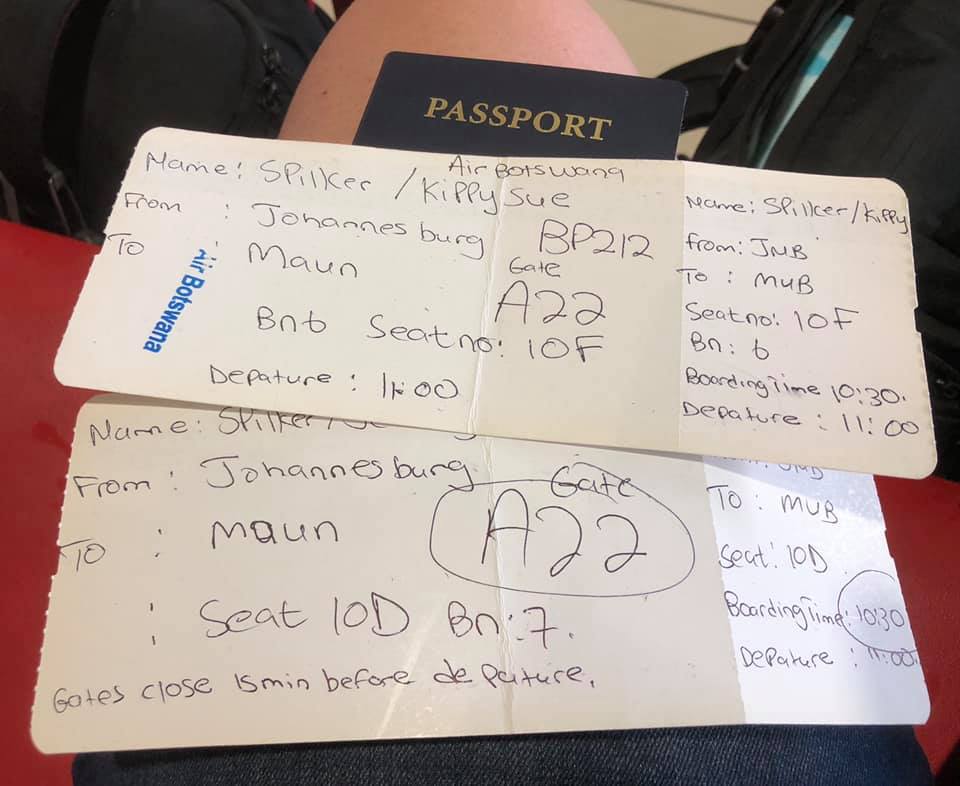 PASSPORT
Air Botswana
Name: SPilker / Kippy Sue
From : Johannesburg BP212
To : Maun
Gate
A22
Air Botswana
Bn 6 Seat no: 10F
Depature : 11:00
Name: SPilker/Kippy
from: JNB
To : MUB
Seat no: 10F
Bn: 6
Boarding Time 10:30.
Depature : 11:00
Name: SPilker /
From : Johannesburg
Gate
A22
To : Maun
: Seat 10D Bn: 7.
Gates close 15min before depature.
JNB
To : MUB
Seat: 10D
Boarding Time: 10:30
Depature : 11:00.